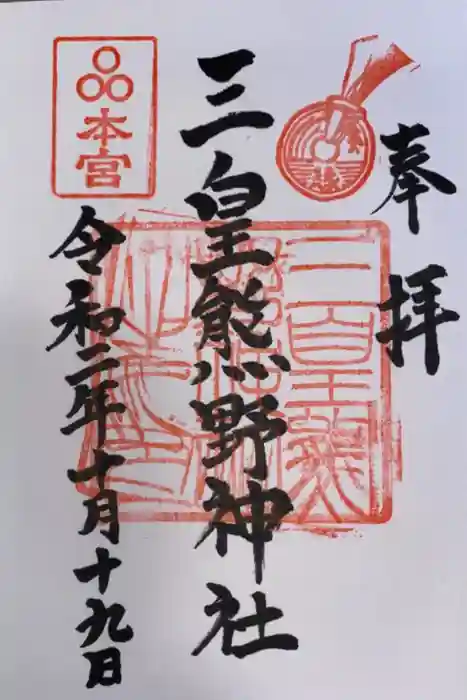 奉拝
三皇熊野神社
本宮
令和二年十月十九日